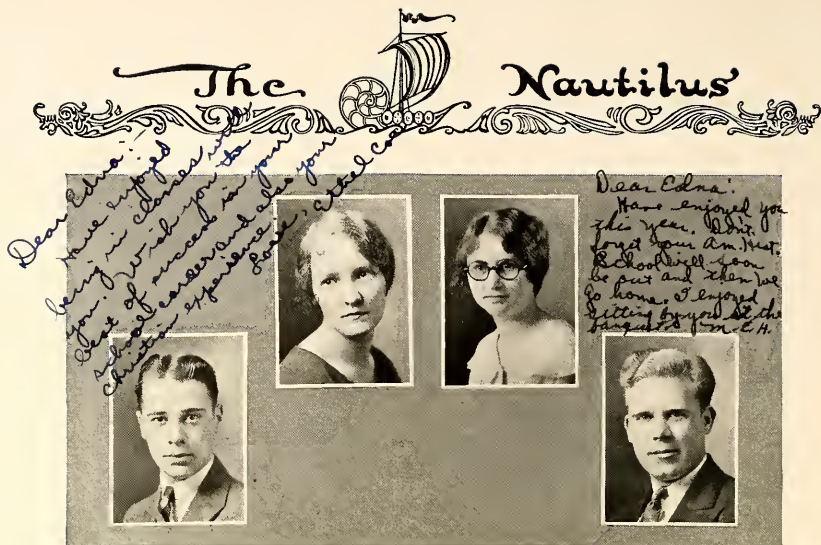 The Nautilus
Dear Edna:-
Have enjoyed
being in classes with
you. I wish you the
best of success in your
school career and also your
Christian experience.
Love, Ethel Coe
Dear Edna:
Have enjoyed you
this year. Don't
forget your Am. Hist.
School will soon
be out and then we
go home. I enjoyed
sitting by you at the
banquet. M.C.H.